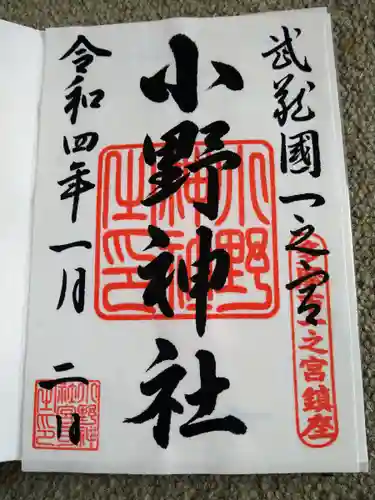 武蔵國一之宮
小野神社
令和四年一月二日
小野神社之印
之宮鎮座